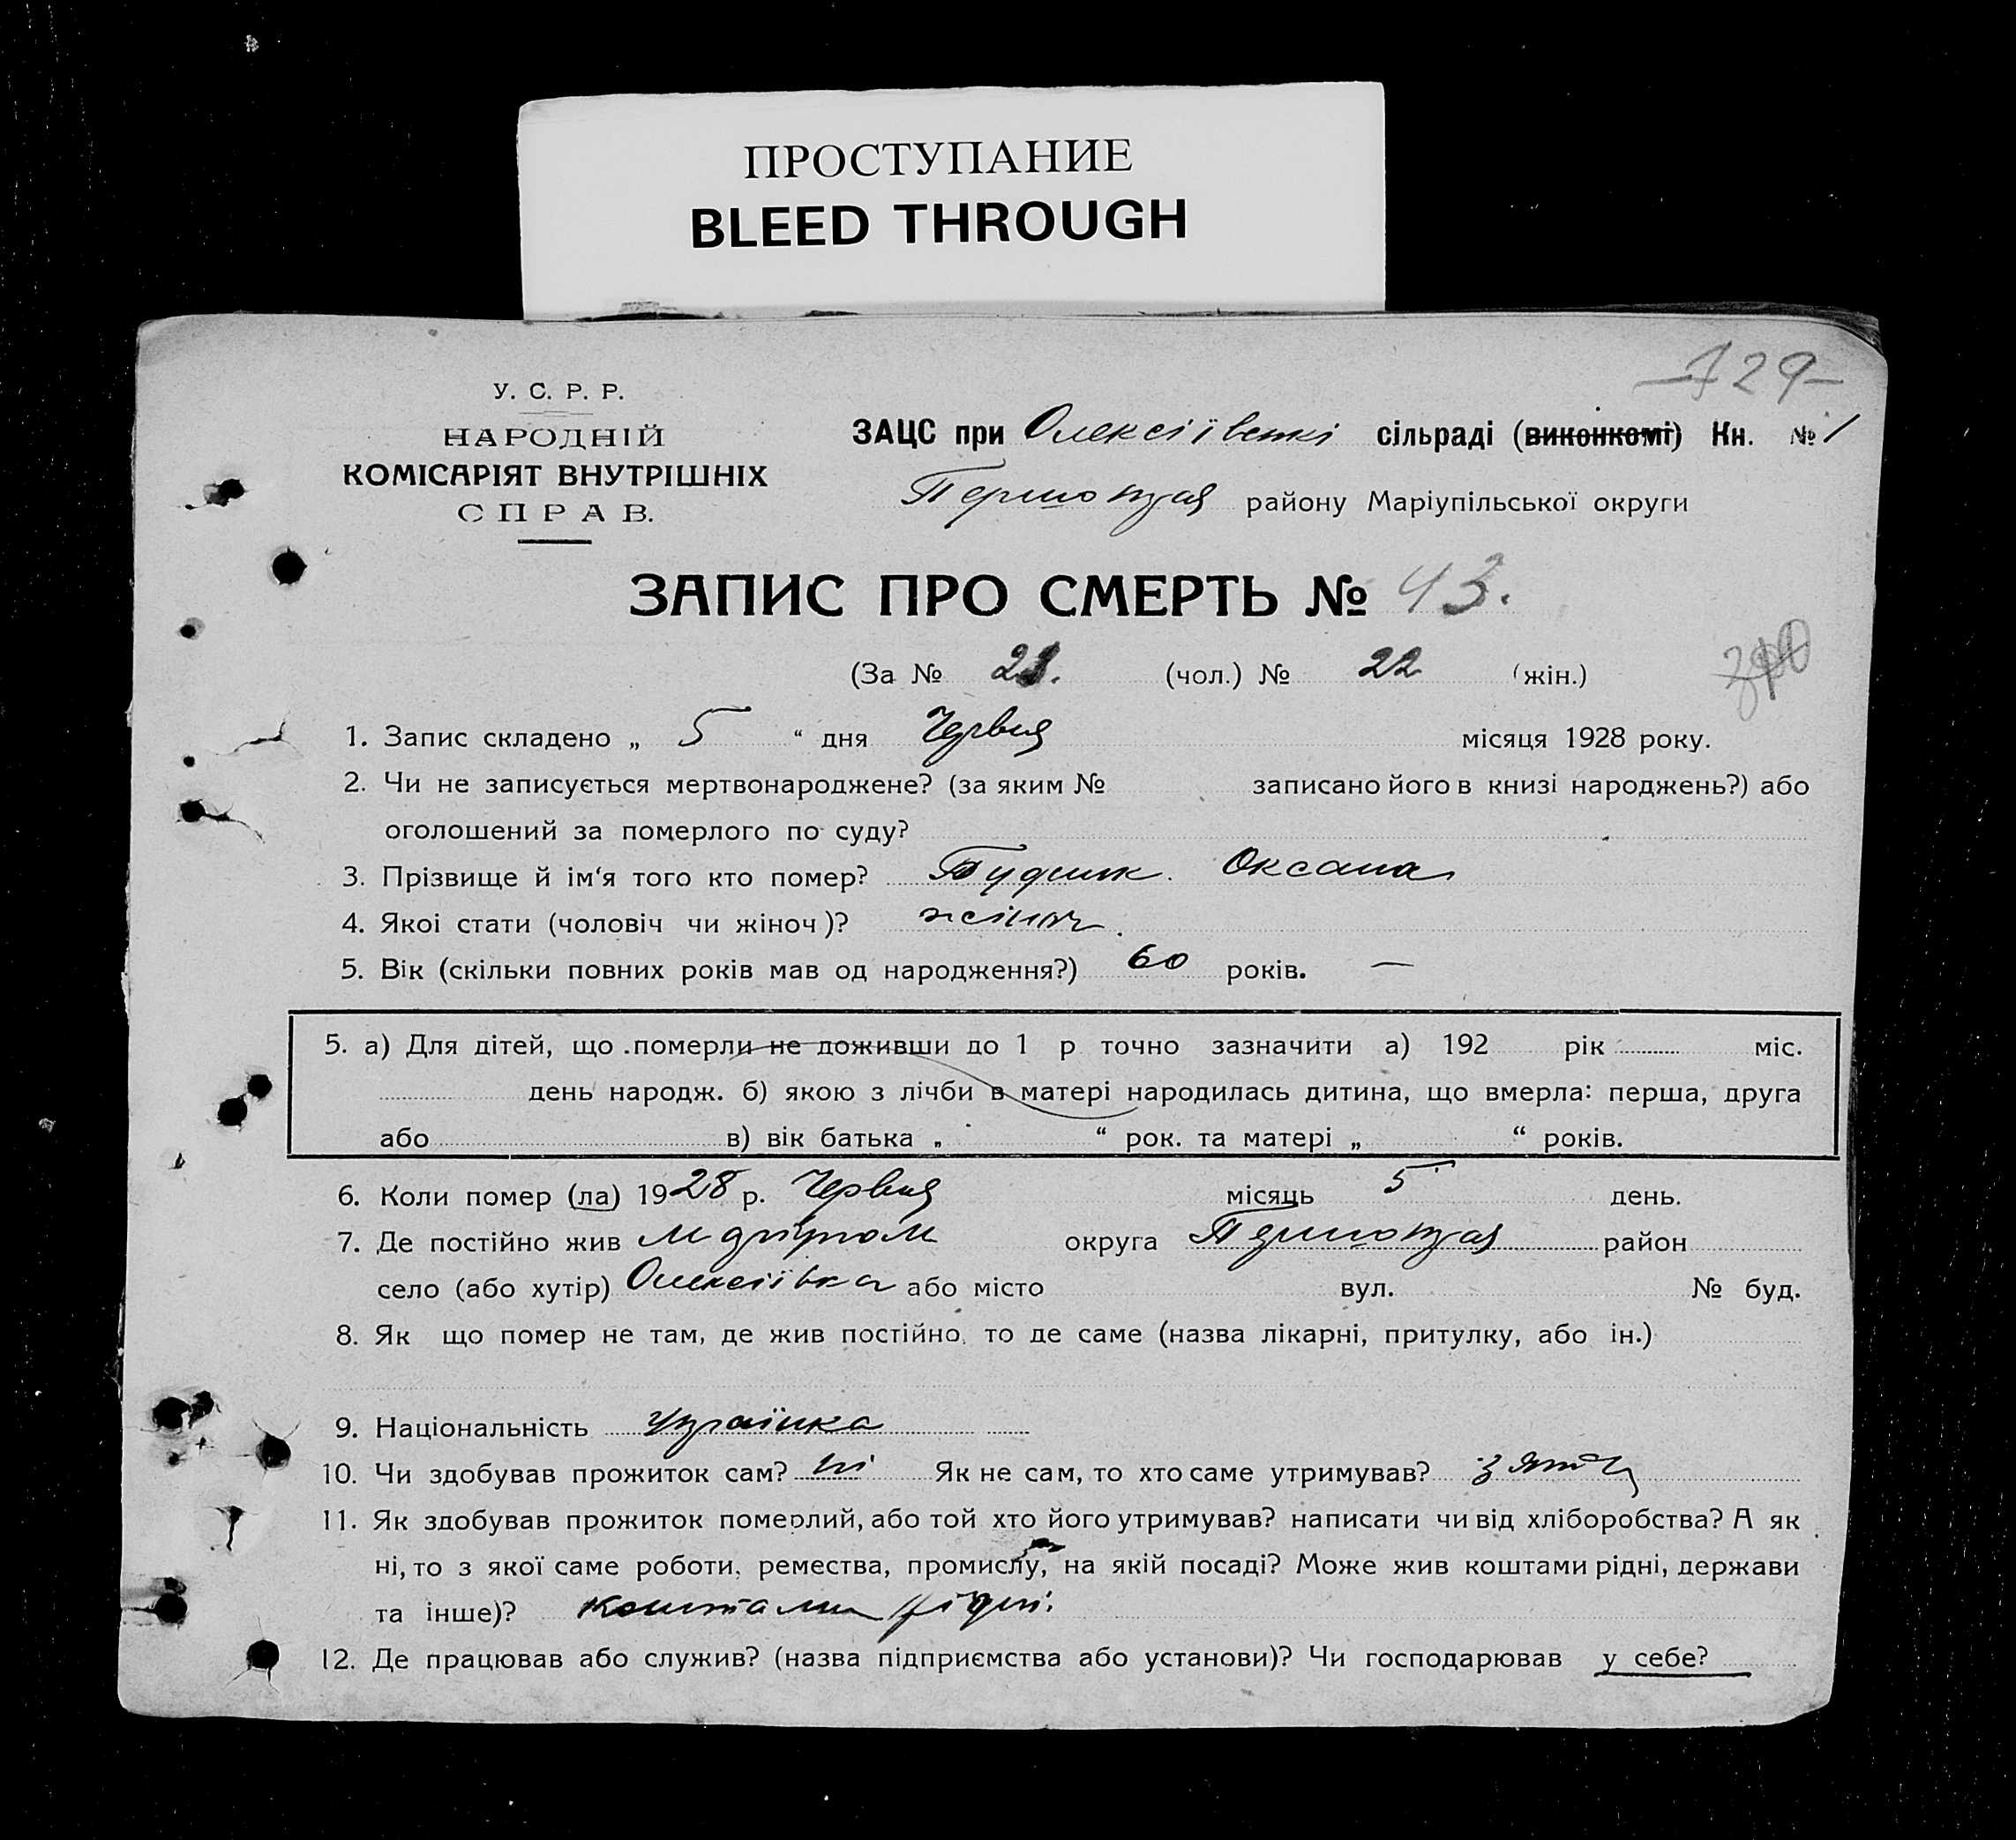 ПРОСТУПАНИЕ
BLEED THROUGH
-129-
У. С. Р. Р.
НАРОДНІЙ
КОМІСАРІЯТ ВНУТРІШНІХ
СПРАВ.
ЗАЦС при Олексіївські сільраді (виконкомі) Кн. № 1
району Маріупільської округи
ЗАПИС ПРО СМЕРТЬ № 43.
(За № 21. (чол.) № 22 (жін.)
1. Запис складено „ 5 “ дня Червня місяця 1928 року.
2. Чи не записується мертвонароджене? (за яким № записано його в книзі народжень?) або
оголошений за померлого по суду?
3. Прізвище й ім'я того кто помер? Оксана
4. Якоі стати (чоловіч чи жіноч)? жіноч.
5. Вік (скільки повних років мав од народження?) 60 років. —
5. а) Для дітей, що померли не доживши до 1 р точно зазначити а) 192 рік міс.
день народж. б) якою з лічби в матері народилась дитина, що вмерла: перша, друга
або в) вік батька „ “ рок. та матері „ “ років.
6. Коли помер (ла) 1928 р. Червня місяць 5 день.
7. Де постійно жив округа район
село (або хутір) Олексіївка або місто вул. № буд.
8. Як що помер не там, де жив постійно, то де саме (назва лікарні, притулку, або ін.)
9. Національність Украінка
10. Чи здобував прожиток сам? ні Як не сам, то хто саме утримував? зять
11. Як здобував прожиток померлий, або той хто його утримував? написати чи від хліборобства? А як
ні, то з якої саме роботи, ремества, промислу, на якій посаді? Може жив коштами рідні, держави
та інше)? коштами рідні.
12. Де працював або служив? (назва підприємства або установи)? Чи господарював у себе?